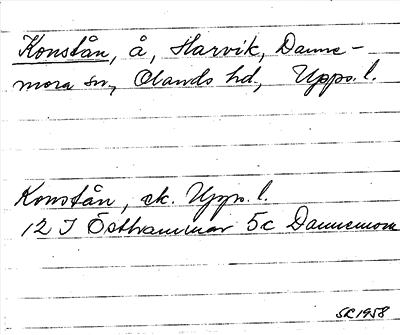 Konstån, å, Harvik, Danne-
mora sn, Olands hd, Upps. l.
Konstån, ek. Upps. l.
12 I Östhammar 5c Dannemora
SK 1958